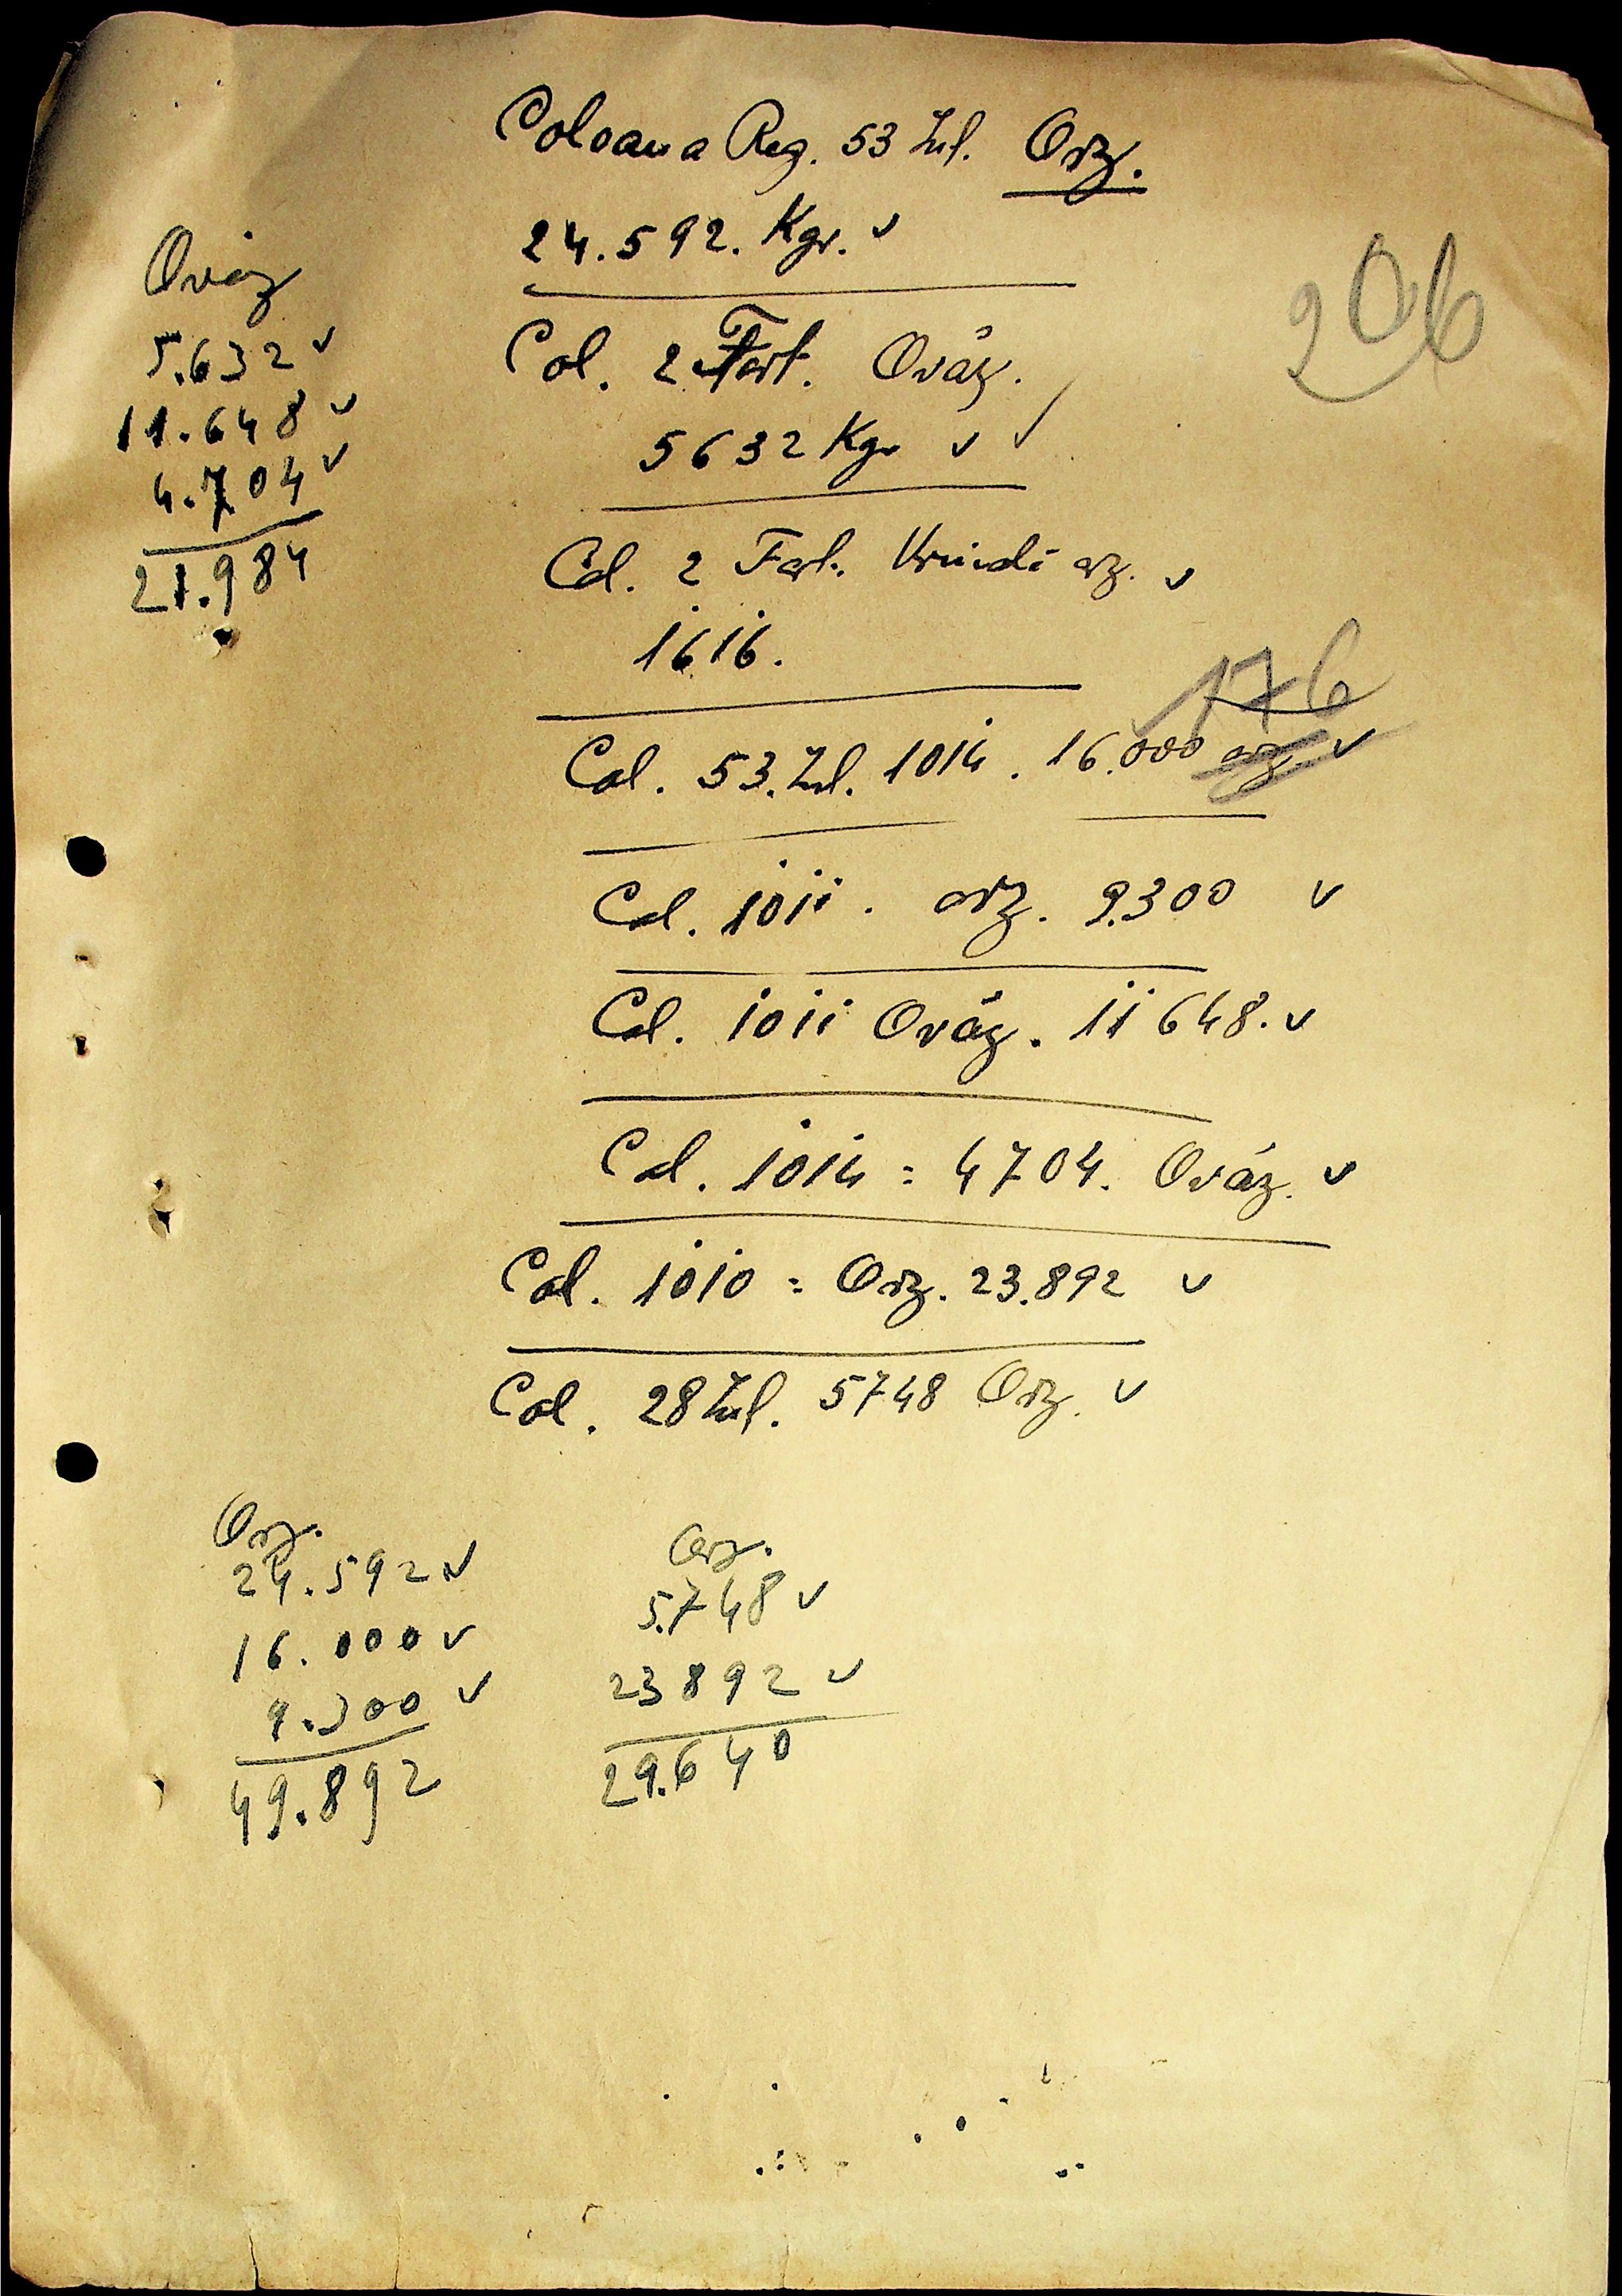 Coloana Reg. 53 Inf. Orz.
24.592. Kgr. v
206
Ovăz
5.632 v
11.648 v
4.704 v
21.984
Col. 2 Fort. Ovăz.
5632 Kgr v v
Col. 2 Fort. orz. v
1616.
176
Col. 53. Inf. 1014. 16.000 orz. v
Col. 1011. orz. 9.300 v
Col. 1011 Ovăz. 11648. v
Col. 1014 = 4704. Ovăz. v
Col. 1010 = Orz. 23.892 v
Col. 28 Inf. 5748 Orz. v
Orz.
24.592 v
16.000 v
9.300 v
49.892
Orz.
5.748 v
23892 v
29.640